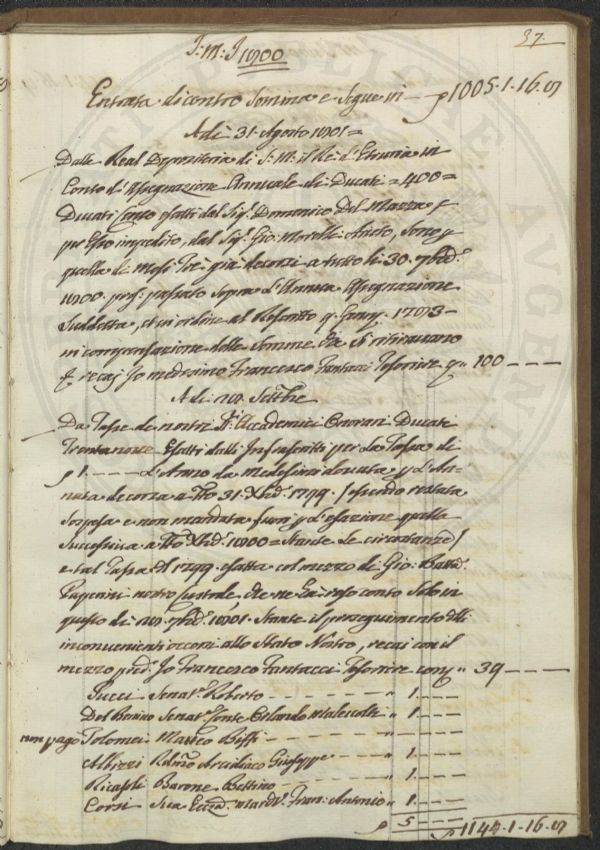 37.
J: M: J 1800
Entrata di contro Somma e Segue in — 1005.1.16.8
A di 31. Agosto 1801 =
Dalla Real Depositeria di S: M: il Re d'Etruria in
Conto d'Assegnazione Annuale di Ducati = 400 =
Ducati Cento esatti dal Sig.r Domenico Del Mazza
per Esso impedito, dal Sig.r Gio: Morelli Aiuto, sono
quelle di Mesi Tre già decorsi a tutto li 30. 9bre
1800. pross: passato Sopra d'Annua Assegnazione
Suddetta, et in ordine al Rescritto Genn: 1793 —
in compensazione delle Somme che Si ritiravano
recai Io medesimo Francesco Fantacci Tesoriere — 100 — — —
A di Settbre
Da Tasse de nostri Accademici Onorari Ducati
Trentanove Esatti dalli Infrascritti per La Tassa di
1. — — — d'Anno da medesimi dovuta d'An-
nata decorsa a Tto 31. Xbre 1799. / essendo restata
Sospesa e non mandata fuori d'esazione quella
Successiva a Tto Xbre 1800 = Stante Le circostanze /
e tal Tassa 1799. esatta col mezzo di Gio: Batta
nostro Custode, che ne Ha reso conto Solo in
questo di 1801. Stante il proseguimento
inconvenienti occorsi allo Stato Nostro, recai con il
mezzo Io Francesco Fantacci Tesoriere — 39 — — —
Pucci Senat.e Roberto — — — — — " 1. — — —
Del Benino Senat.e Conte Orlando Malevolti — " 1. — — —
non pagò Tolomei Matteo Biffi — — — — — —
Albizzi Rdmo Arcidiaco Giuseppe — — — " 1. — — —
Ricasoli Barone Bettino — — — — — " 1. — — —
Corsi Sua Eccza Fran: Antonio " 1. — — —
5 — — — 1144.1.16.8